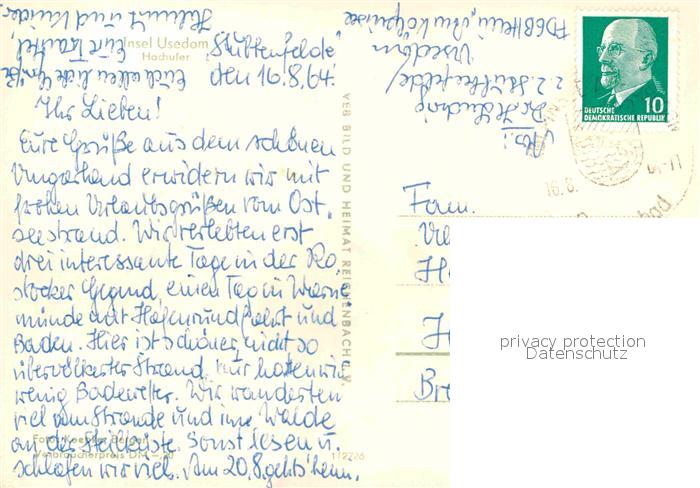 Insel Usedom
Hochufer
"Stubbenfelde"
den 16.8.64.
Ihr Lieben!
Eure Grüße aus dem schönen
Ungarland erwidern wir mit
frohen Urlaubsgrüßen vom Ost-
seestrand. Wir verlebten erst
drei interessante Tage in der Ro-
stocker Gegend, einen Tag in Warne-
münde mit Hafenrundfahrt und
Baden. Hier ist schöner, nicht so
übervölkerter Strand, nur hatten wir
wenig Badewetter. Wir wanderten
viel am Strande und im Walde
an der Steilküste. Sonst lesen u.
schlafen wir viel. Am 20.8. geht's heim.
Euch allen liebe Grüße
Eure
Helmut und
Foto: Koehler Berger
Verbraucherpreis DM
112726
VEB BILD UND HEIMAT REICHENBACH I. V.
Abs.:
z.Z. Stubbenfelde/
Usedom
DEUTSCHE
DEMOKRATISCHE REPUBLIK
10
16.8.
Fam.
privacy protection
Datenschutz